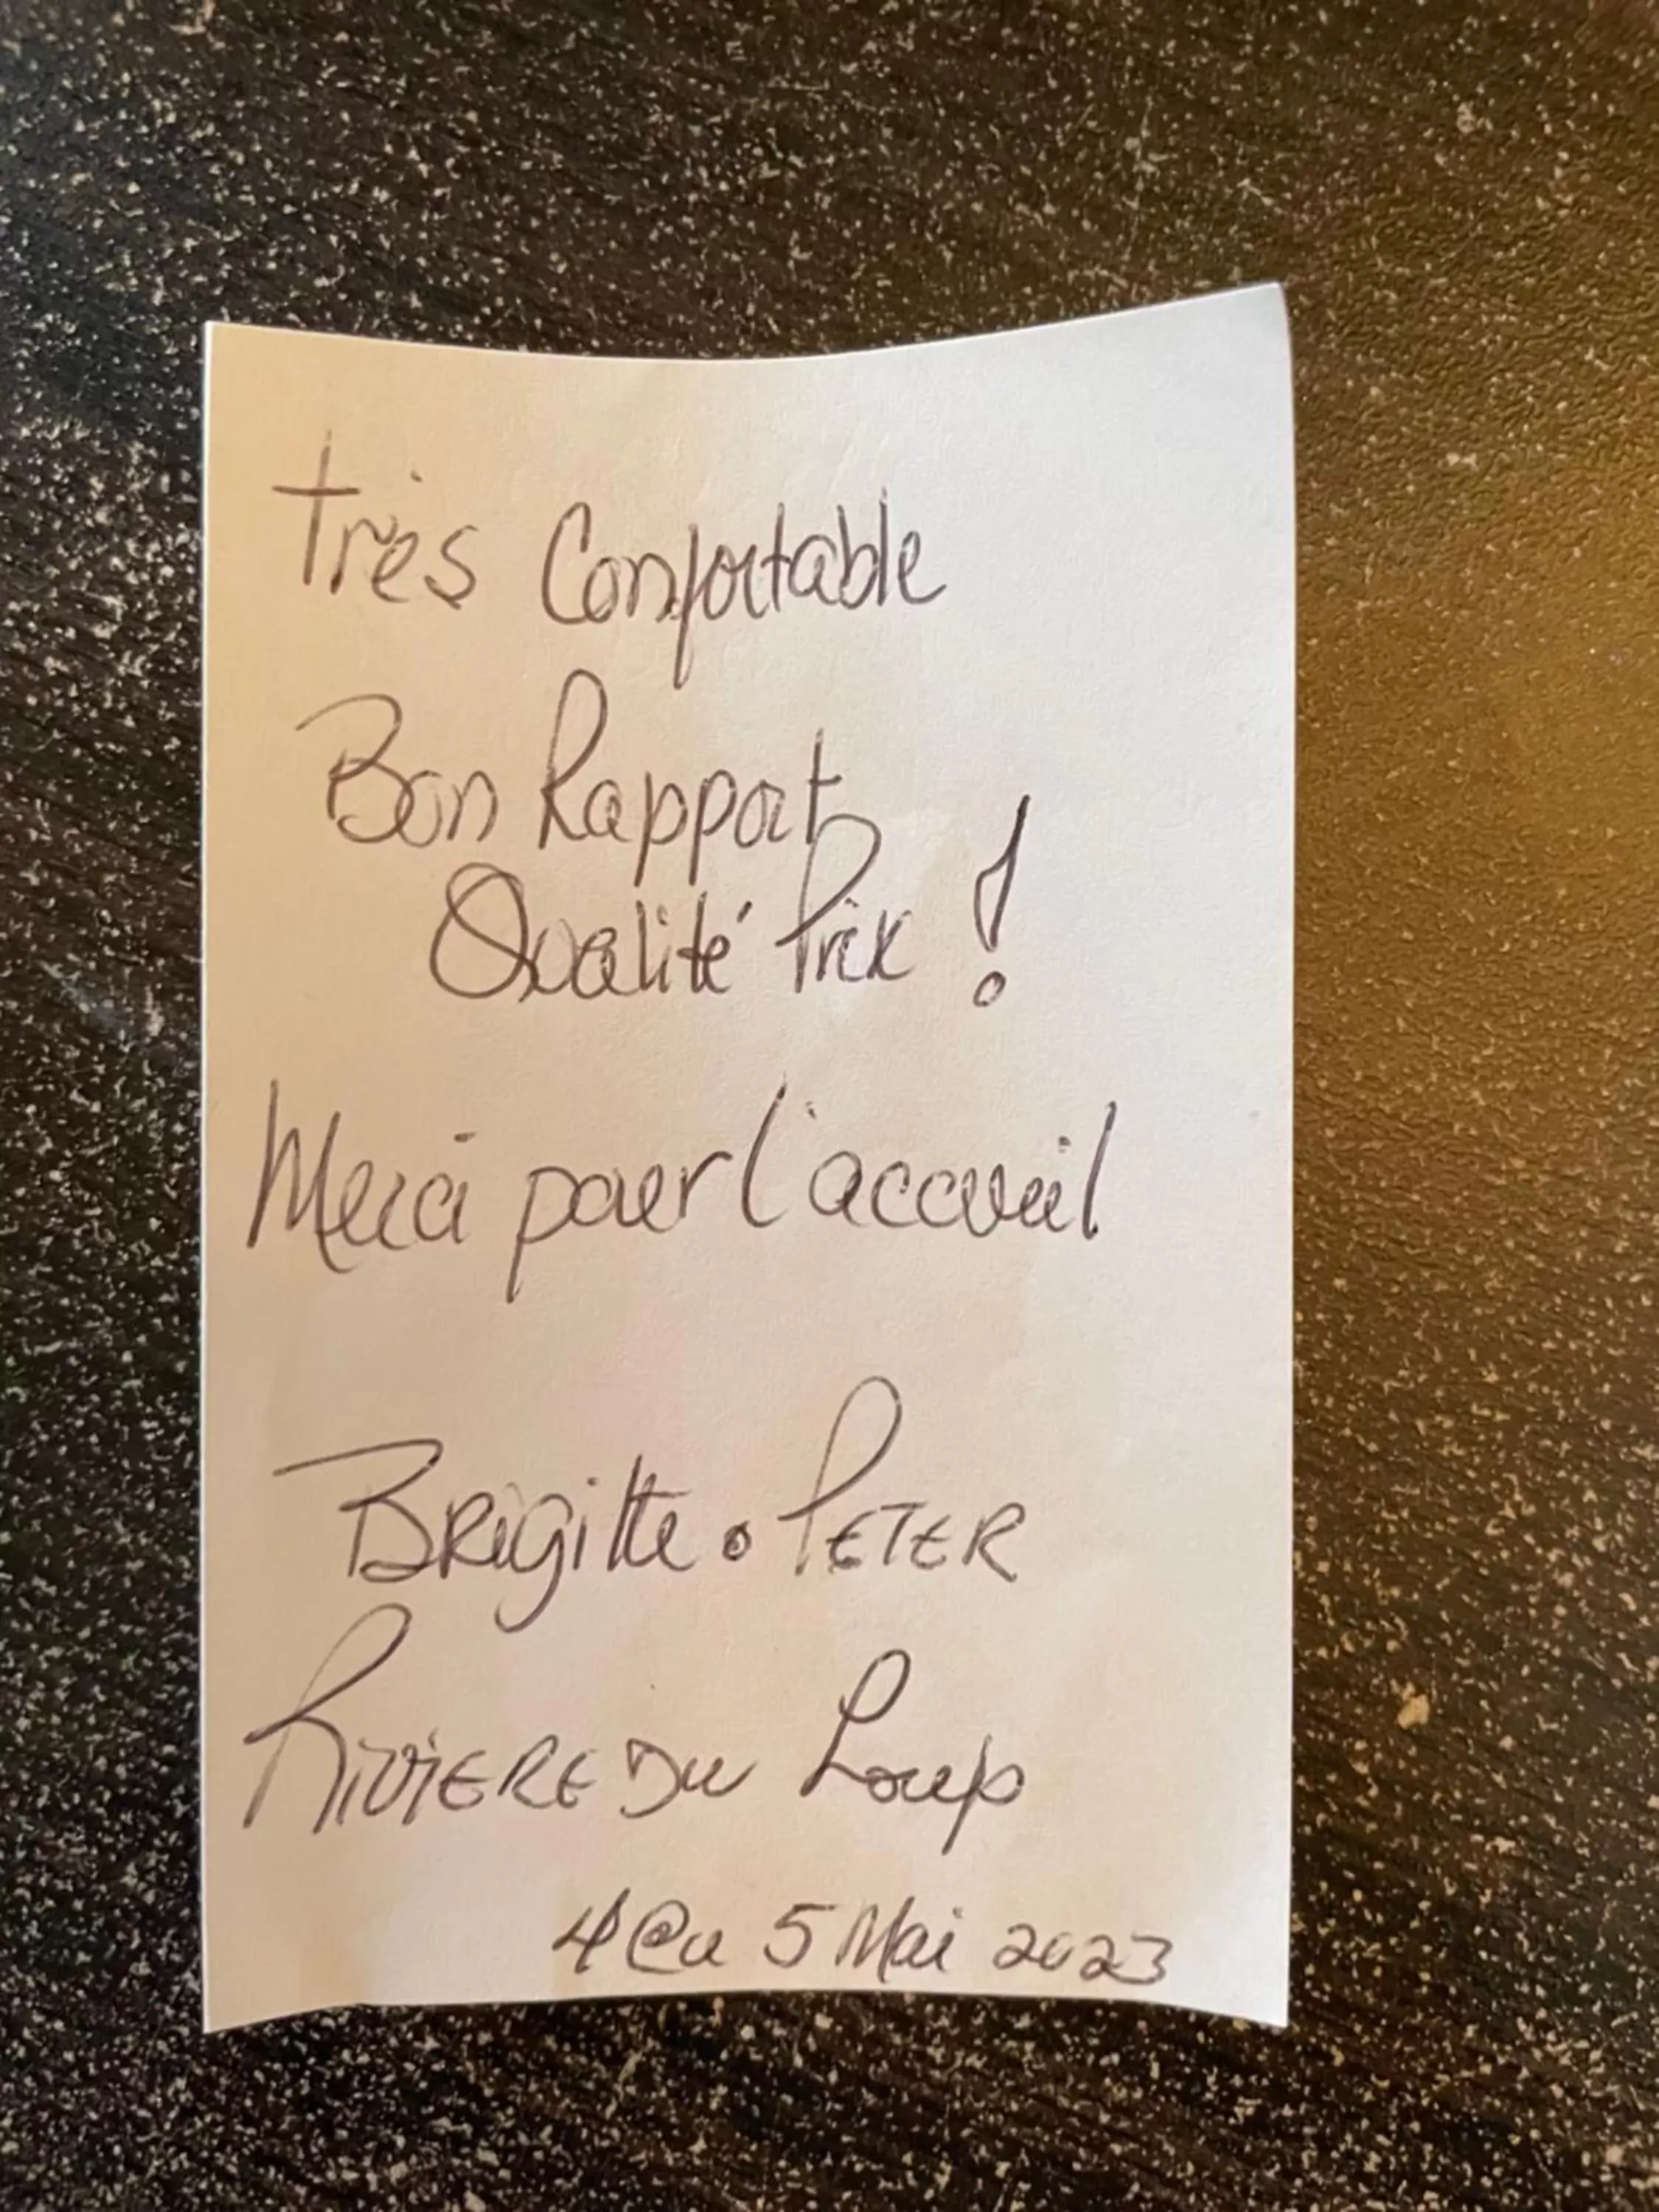 Très Confortable
Bon Rapport
Qualité Prix !
Merci pour l'accueil
Brigitte . PETER
RIVIERE DU Loup
4 @u 5 Mai 2023